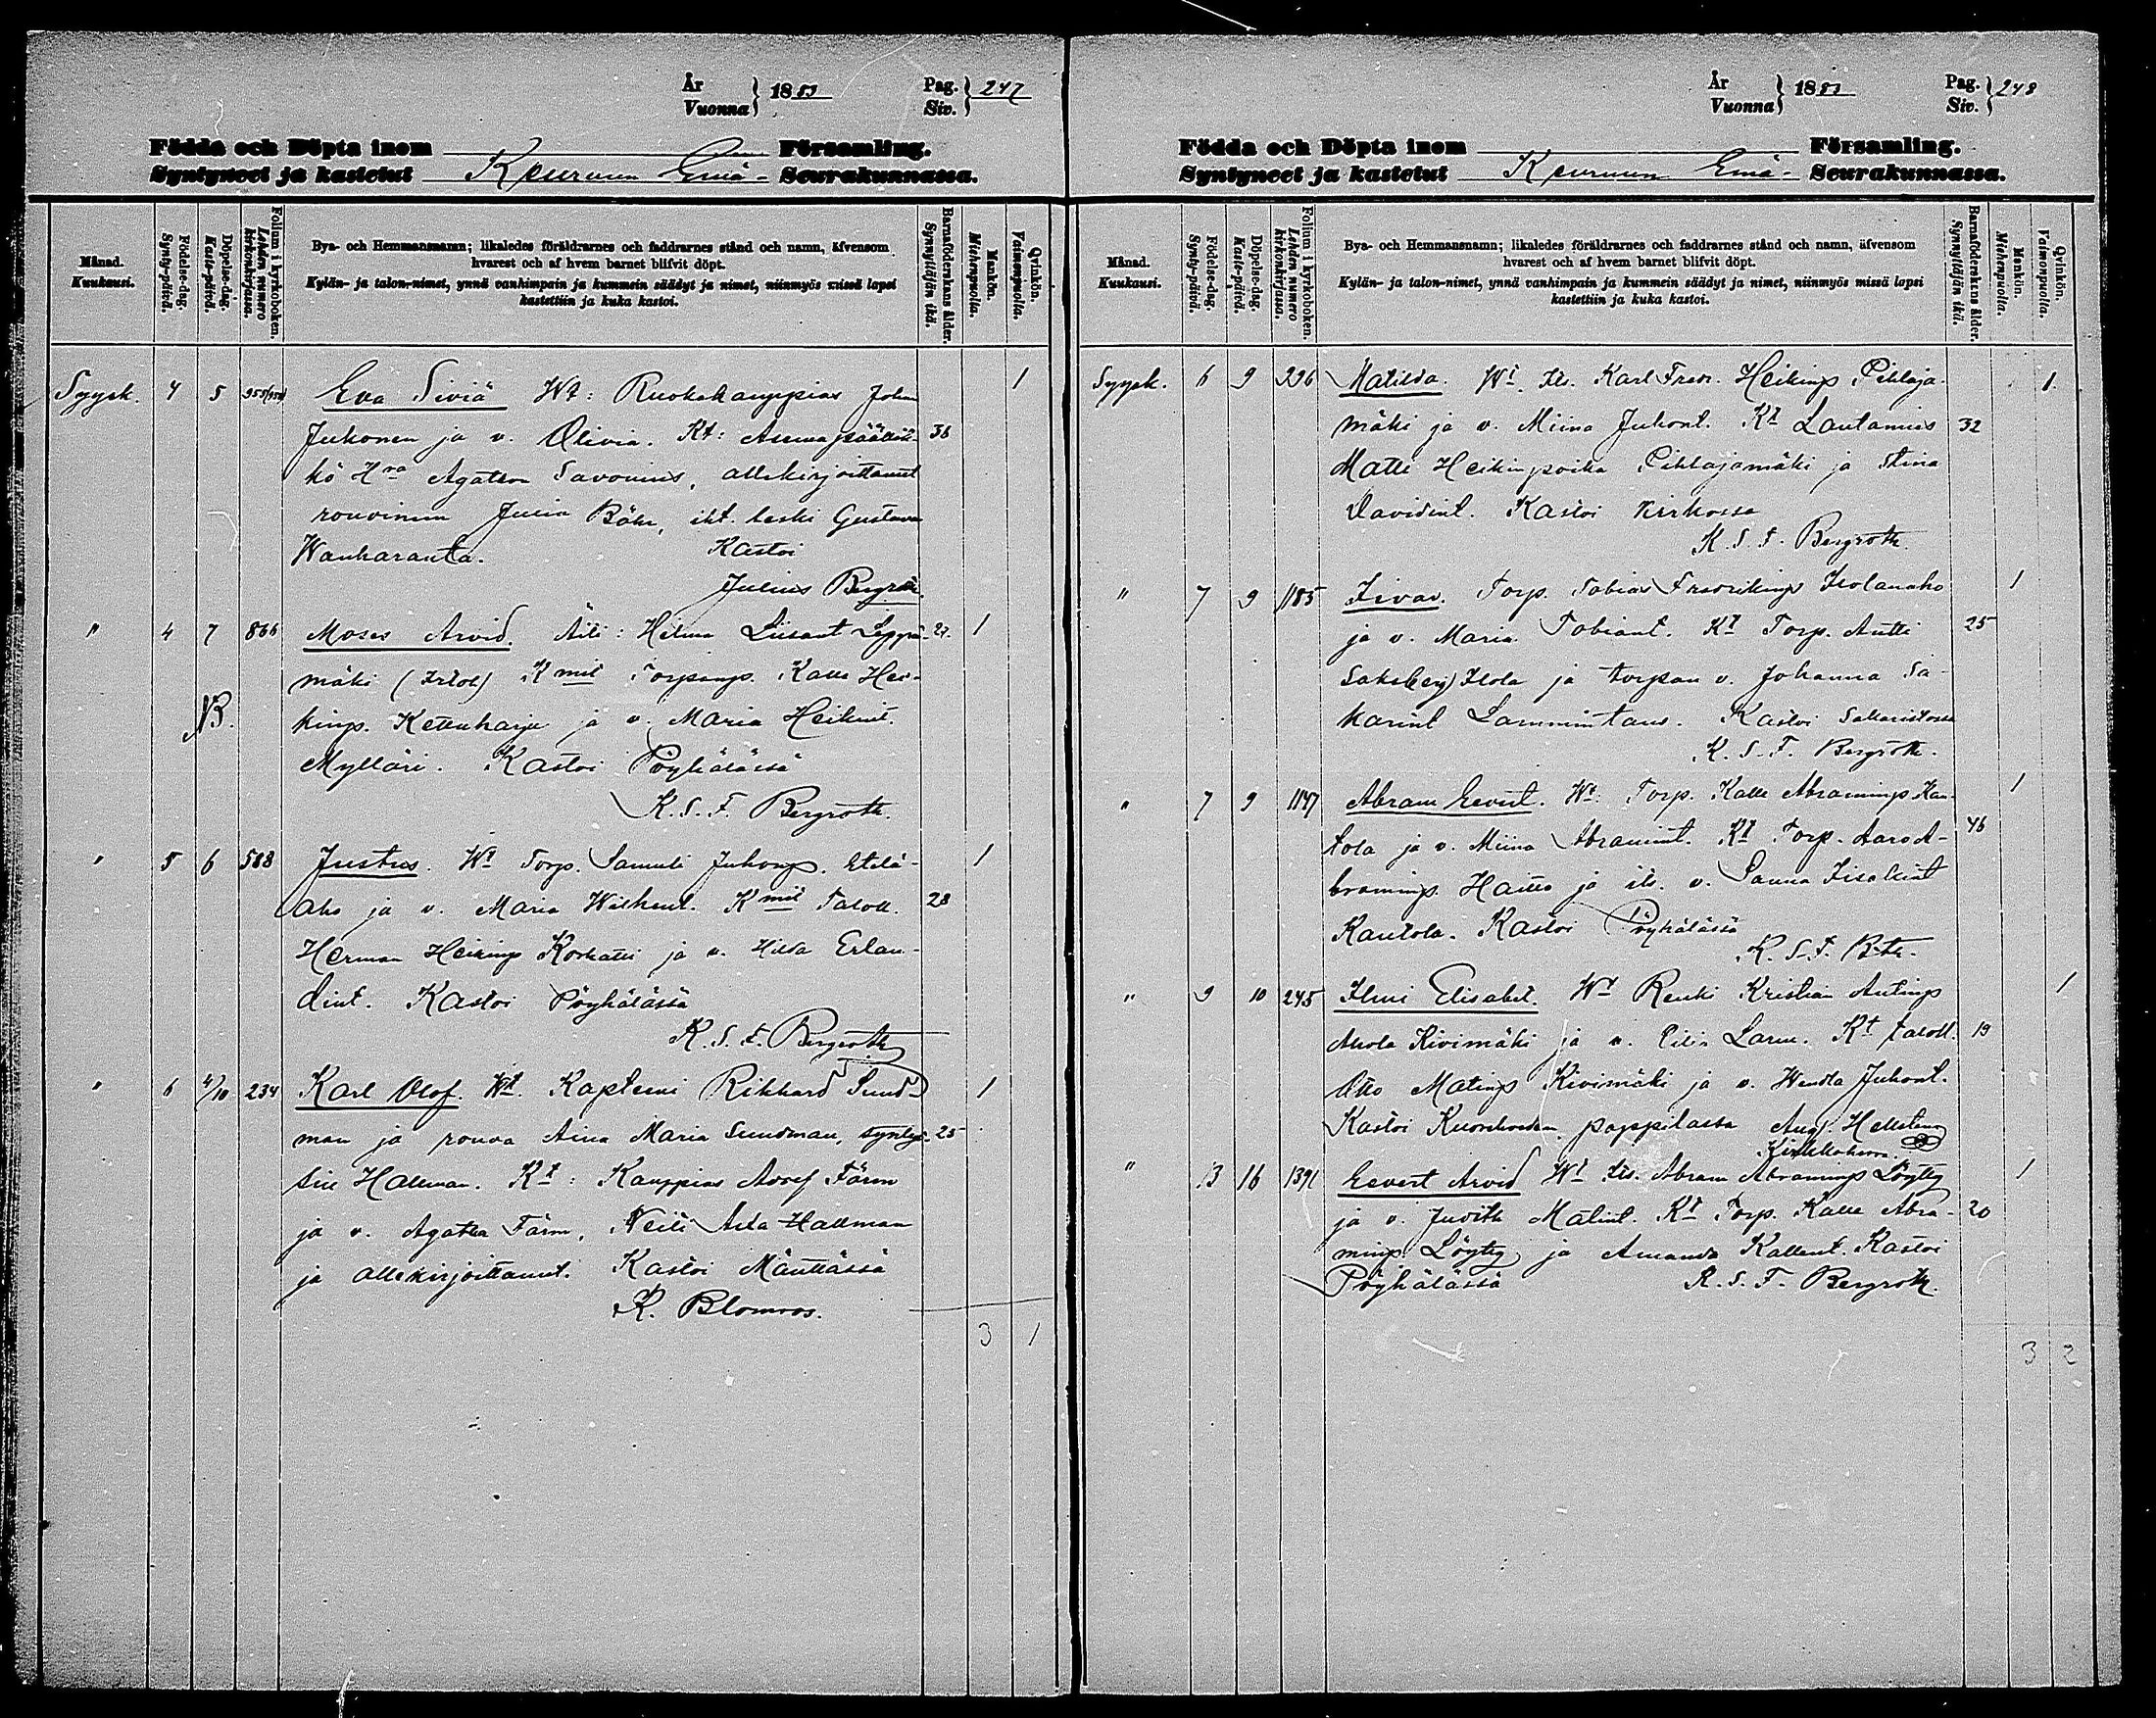 År
Vuonna } 1883
Pag.
Siv. } 247
Födda och Döpta inom Församling.
Syntyneet ja kastetut Keuruun Emä- Seurakunnassa.
Månad.
Kuukausi.
Födelse-dag.
Synty-päivä.
Döpelse-dag.
Kaste-päivä.
Folium i kyrkoboken.
Lehden numero kirkonkirjassa.
Bya- och Hemmansnamn; likaledes föräldrarnes och faddrarnes stånd och namn, äfvensom
hvarest och af hvem barnet blifvit döpt.
Kylän- ja talon-nimet, ynnä vanhimpain ja kummein säädyt ja nimet, niinmyös missä lapsi
kastettiin ja kuka kastoi.
Barnaföderskans ålder.
Synnyttäjän ikä.
Mankön.
Miehenpuolia.
Qvinkön.
Vaimonpuolia.
Syysk. 4 5 Eva Siviä Wt: Ruokakauppias Johan 1
Juhonen ja v. Olivia. Kt: Asemapäällik- 36
kö Hra Agaton Savonius, allekirjoittanut
rouvineen Julia Böhr, iht. leski Gustava
Wanharanta. Kastoi
Julius Bergroth.
" 4 7 866 Moses Arvid. Äiti: Helma Liisant Leppä- 27. 1
mäki (Irtol) Kmit Torpanp. Kalle Hei-
NB. kinp. Kettuharju ja v. Maria Heikint.
Mylläri. Kastoi Pöyhälässä
K. S. F. Bergroth.
" 5 6 588 Justus. Wt Torp. Samuli Juhonp. Etelä- 1
aho ja v. Maria Wilhent. Kmit Taloll. 28
Herman Heikinp Korkatti ja v. Hilda Erlan-
dint. Kastoi Pöyhälässä
K. S. F. Bergroth
" 6 4/10 234 Karl Olof. Wt. Kapteeni Rikhard Sund- 1
man ja rouva Aina Maria Sundman, synty- 25
sin Hallman. Kt: Kauppias Adolf Färm
ja v. Agatha Färm, Neiti Aida Hallman
ja allekirjoittanut. Kastoi Mänttässä
K. Blomroos.
3 1
År
Vuonna } 1883
Pag.
Siv. } 248
Födda och Döpta inom Församling.
Syntyneet ja kastetut Keuruun Emä- Seurakunnassa.
Månad.
Kuukausi.
Födelse-dag.
Synty-päivä.
Döpelse-dag.
Kaste-päivä.
Folium i kyrkoboken.
Lehden numero kirkonkirjassa.
Bya- och Hemmansnamn; likaledes föräldrarnes och faddrarnes stånd och namn, äfvensom
hvarest och af hvem barnet blifvit döpt.
Kylän- ja talon-nimet, ynnä vanhimpain ja kummein säädyt ja nimet, niinmyös missä lapsi
kastettiin ja kuka kastoi.
Barnaföderskans ålder.
Synnyttäjän ikä.
Mankön.
Miehenpuolia.
Qvinkön.
Vaimonpuolia.
Syysk. 6 9 296 Matilda. Wt. Its. Karl Fredr. Heikinp Pihlaja- 1.
mäki ja v. Miina Juhont. Kt Lautamies 32
Matti Heikinpoika Pihlajamäki ja Stina
Davidint. Kastoi Kirkossa
K. S. F. Bergroth.
" 7 9 1185 Iivar. Torp. Tobias Fredrikinp Isolanaho 1
ja v. Maria Tobiant. Kt Torp. Antti 25
Sakelerj Isola ja torpan v. Johanna Sa-
karint Lammintaus. Kastoi Sakaristossa
K. S. F. Bergroth.
" 7 9 1147 Abram Eevert. Wt: Torp. Kalle Abraminp. Kan- 1
tola ja v. Miina Abramint. Kt Torp. Aaro A- 46
braminp. Haitto ja its. v. Sanna Iisakint
Kantola. Kastoi Pöyhälässä
K. S. F. Bth.
" 9 10 245 Ilmi Elisabet. Wt Renki Kristian Antinp 1
Ahola Kivimäki ja v. Eilis Larm. Kt taloll. 19
Otto Matinp Kivimäki ja v. Wendla Juhont.
Kastoi Kuoreveden pappilassa Aug. Hellsten
Kirkkoherra.
" 13 16 1391 Eevert Arvid Wt Its. Abram Abraminp Löytty 1
ja v. Judith Matint. Kt Torp. Kalle Abra- 20
minp Löytty ja Amanda Kallent. Kastoi
Pöyhälässä K. S. F. Bergroth.
3 2